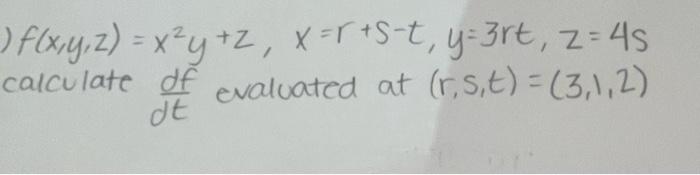 ) f(x,y,z) = x²y + z, x = r + s - t, y = 3rt, z = 4s
calculate df/dt evaluated at (r,s,t) = (3,1,2)